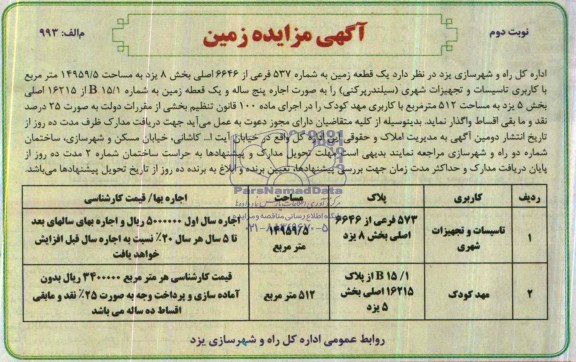 نوبت دوم
آگهی مزایده زمین
م‌الف: ۹۹۳
اداره کل راه و شهرسازی یزد در نظر دارد یک قطعه زمین به شماره ۵۳۷ فرعی از ۶۶۴۶ اصلی بخش ۸ یزد به مساحت ۱۴۹۵۹/۵ متر مربع
با کاربری تاسیسات و تجهیزات شهری (سیلندرپرکنی) را به صورت اجاره پنج ساله و یک قطعه زمین به شماره B ۱۵/۱ از ۱۶۲۱۵ اصلی
بخش ۵ یزد به مساحت ۵۱۲ مترمربع با کاربری مهد کودک را در اجرای ماده ۱۰۰ قانون تنظیم بخشی از مقررات دولت به صورت ۲۵ درصد
نقد و ما بقی اقساط واگذار نماید. بدینوسیله از کلیه متقاضیان دارای مجوز دعوت به عمل می‌آید جهت دریافت مدارک ظرف مدت ده روز از
تاریخ انتشار دومین آگهی به مدیریت املاک و حقوقی این اداره کل واقع در خیابان آیت ا... کاشانی، خیابان مسکن و شهرسازی، ساختمان
شماره دو راه و شهرسازی مراجعه نمایند بدیهی است مهلت تحویل مدارک و پیشنهادها به حراست ساختمان شماره ۲ مدت ده روز از
پایان دریافت مدارک و حداکثر مدت زمان جهت بررسی پیشنهادها، تعیین برنده و ابلاغ به برنده ده روز از تاریخ تحویل پیشنهادها می‌باشد.
ردیف کاربری پلاک مساحت اجاره بها/ قیمت کارشناسی
۱ تاسیسات و تجهیزات شهری ۵۷۳ فرعی از ۶۶۴۶ اصلی بخش ۸ یزد ۱۴۹۵۹/۵ متر مربع اجاره سال اول ۵۰۰۰۰۰۰ ریال و اجاره بهای سالهای بعد تا ۵ سال هر سال ۲۰٪ نسبت به اجاره سال قبل افزایش خواهد یافت
۲ مهد کودک B ۱۵ /۱ از پلاک ۱۶۲۱۵ اصلی بخش ۵ یزد ۵۱۲ متر مربع قیمت کارشناسی هر متر مربع ۳۴۰۰۰۰۰ ریال بدون آماده سازی و پرداخت وجه به صورت ۲۵٪ نقد و مابقی اقساط ده ساله می باشد
روابط عمومی اداره کل راه و شهرسازی یزد
ParsNamadData